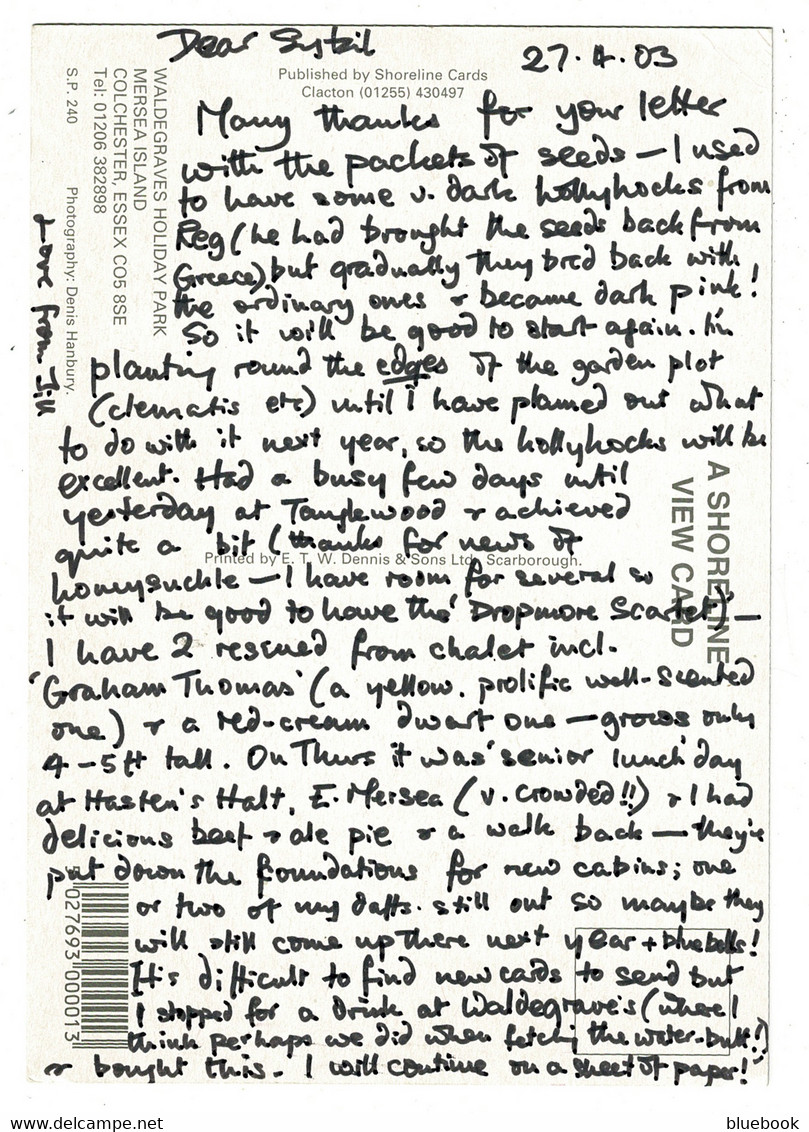 Dear Sybil
27.4.03
Published by Shoreline Cards
Clacton (01255) 430497
WALDEGRAVES HOLIDAY PARK
MERSEA ISLAND
COLCHESTER, ESSEX CO5 8SE
Tel: 01206 382898
S.P. 240
Photography: Denis Hanbury.
Many thanks for your letter
with the packets of seeds – I used
to have some v. dark hollyhocks from
Reg (he had brought the seeds back from
Greece), but gradually they bred back with
the ordinary ones & became dark pink!
So it will be good to start again. I'm
planting round the edges of the garden plot
(clematis etc) until I have planned out what
to do with it next year, so the hollyhocks will be
excellent. Had a busy few days until
yesterday at Tanglewood & achieved
quite a bit (thanks for news of
Printed by E. T. W. Dennis & Sons Ltd, Scarborough.
honeysuckle – I have room for several so
it will be good to have the 'Dropmore Scarlet') –
I have 2 rescued from chalet incl.
'Graham Thomas' (a yellow. prolific well-scented
one) & a red-cream dwarf one – grows only
4-5ft tall. On Thurs it was 'senior lunch' day
at Hasten's Halt, E. Mersea (v. crowded!!) & I had
delicious beef & ale pie & a walk back – they've
put down the foundations for new cabins; one
or two of my daffs. still out so maybe they
will still come up there next year + bluebells!
It's difficult to find new cards to send but
I stopped for a drink at Waldegrave's (where I
think perhaps we did when fetching the water-butt!)
& bought this. I will continue on a sheet of paper!
Love from Jill
A SHORELINE
VIEW CARD
027693 000013
bluebook